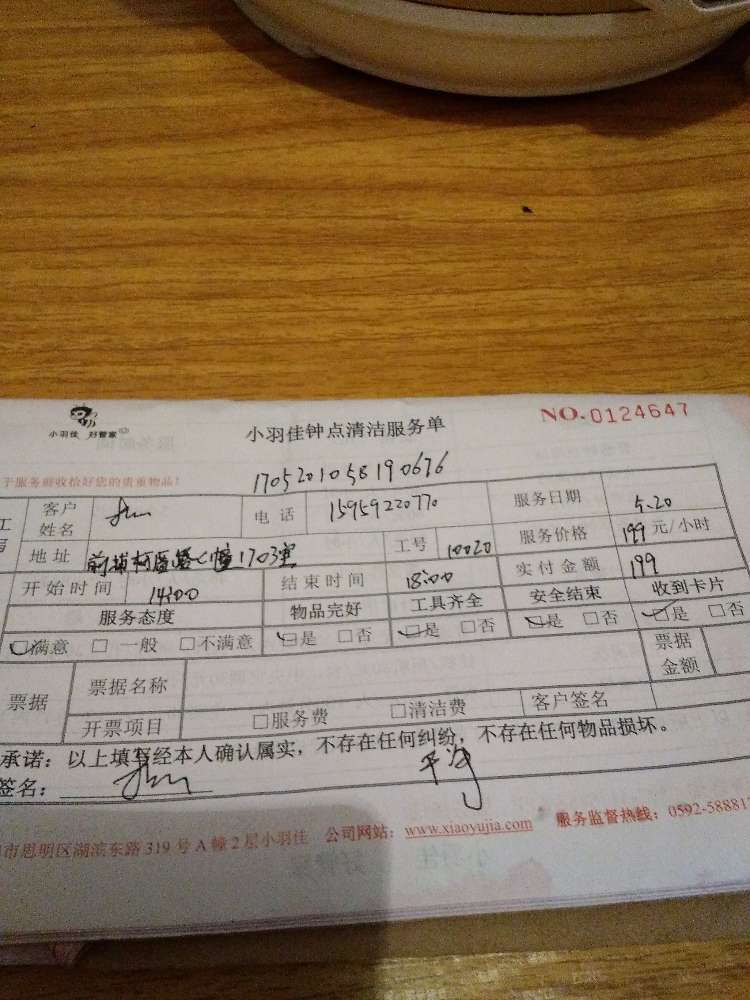 小羽佳 好管家
小羽佳钟点清洁服务单
NO.0124647
于服务前收拾好您的贵重物品!
1705201058190676
客户姓名 电话 15959220770 服务日期 5.20
地址 1703室 工号 10020 服务价格 199 元/小时
开始时间 14:00 结束时间 18:00 实付金额 199
服务态度 物品完好 工具齐全 安全结束 收到卡片
☑满意 □一般 □不满意 ☑是 □否 ☑是 □否 ☑是 □否 ☑是 □否
票据 票据名称 票据金额
开票项目 □服务费 □清洁费 客户签名
承诺:以上填写经本人确认属实,不存在任何纠纷,不存在任何物品损坏。
签名:
市思明区湖滨东路319号A幢2层小羽佳 公司网站:www.xiaoyujia.com 服务监督热线:0592-58881